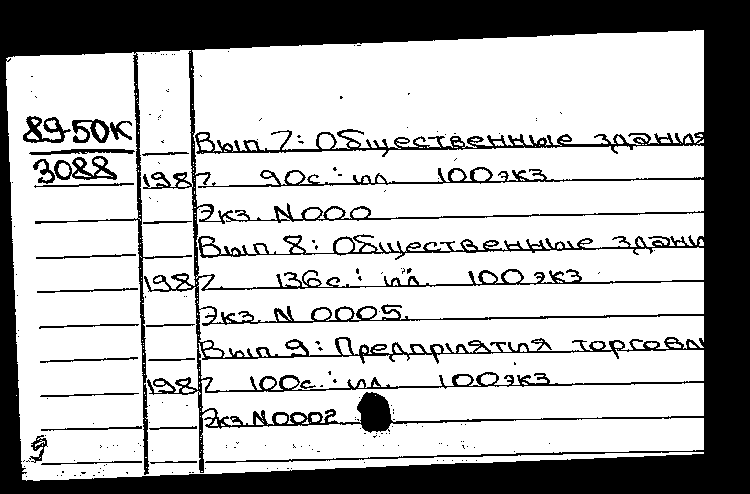 89-50К
3088
Вып. 7: Общественные здания
1987. 90с.: ил. 100 экз.
Экз. N 000
Вып. 8: Общественные здани
1987. 136с.: ил. 100 экз
Экз. N 0005.
Вып. 9: Предприятия торговл
1987 100с.: ил. 100 экз.
Экз. N 0002